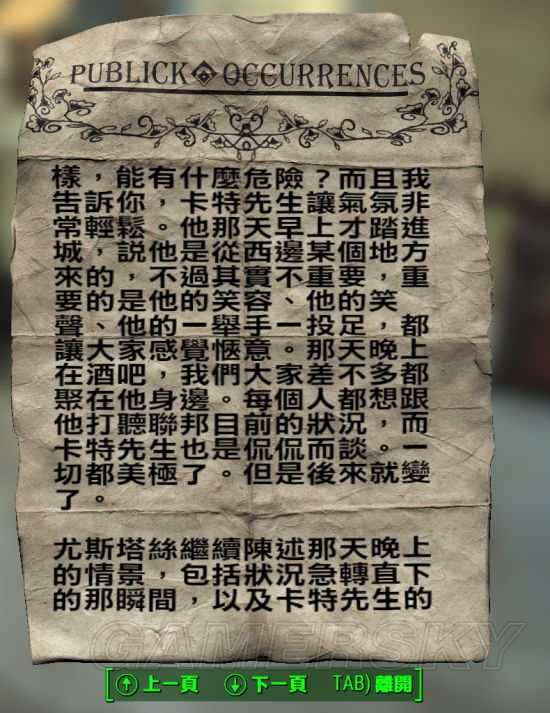 PUBLICK OCCURRENCES
樣，能有什麼危險？而且我
告訴你，卡特先生讓氣氛非
常輕鬆。他那天早上才踏進
城，説他是從西邊某個地方
來的，不過其實不重要，重
要的是他的笑容、他的笑
聲、他的一舉手一投足，都
讓大家感覺愜意。那天晚上
在酒吧，我們大家差不多都
聚在他身邊。每個人都想跟
他打聽聯邦目前的狀況，而
卡特先生也是侃侃而談。一
切都美極了。但是後來就變
了。
尤斯塔絲繼續陳述那天晚上
的情景，包括狀況急轉直下
的那瞬間，以及卡特先生的
GAMERSKY
上一頁 下一頁 TAB) 離開